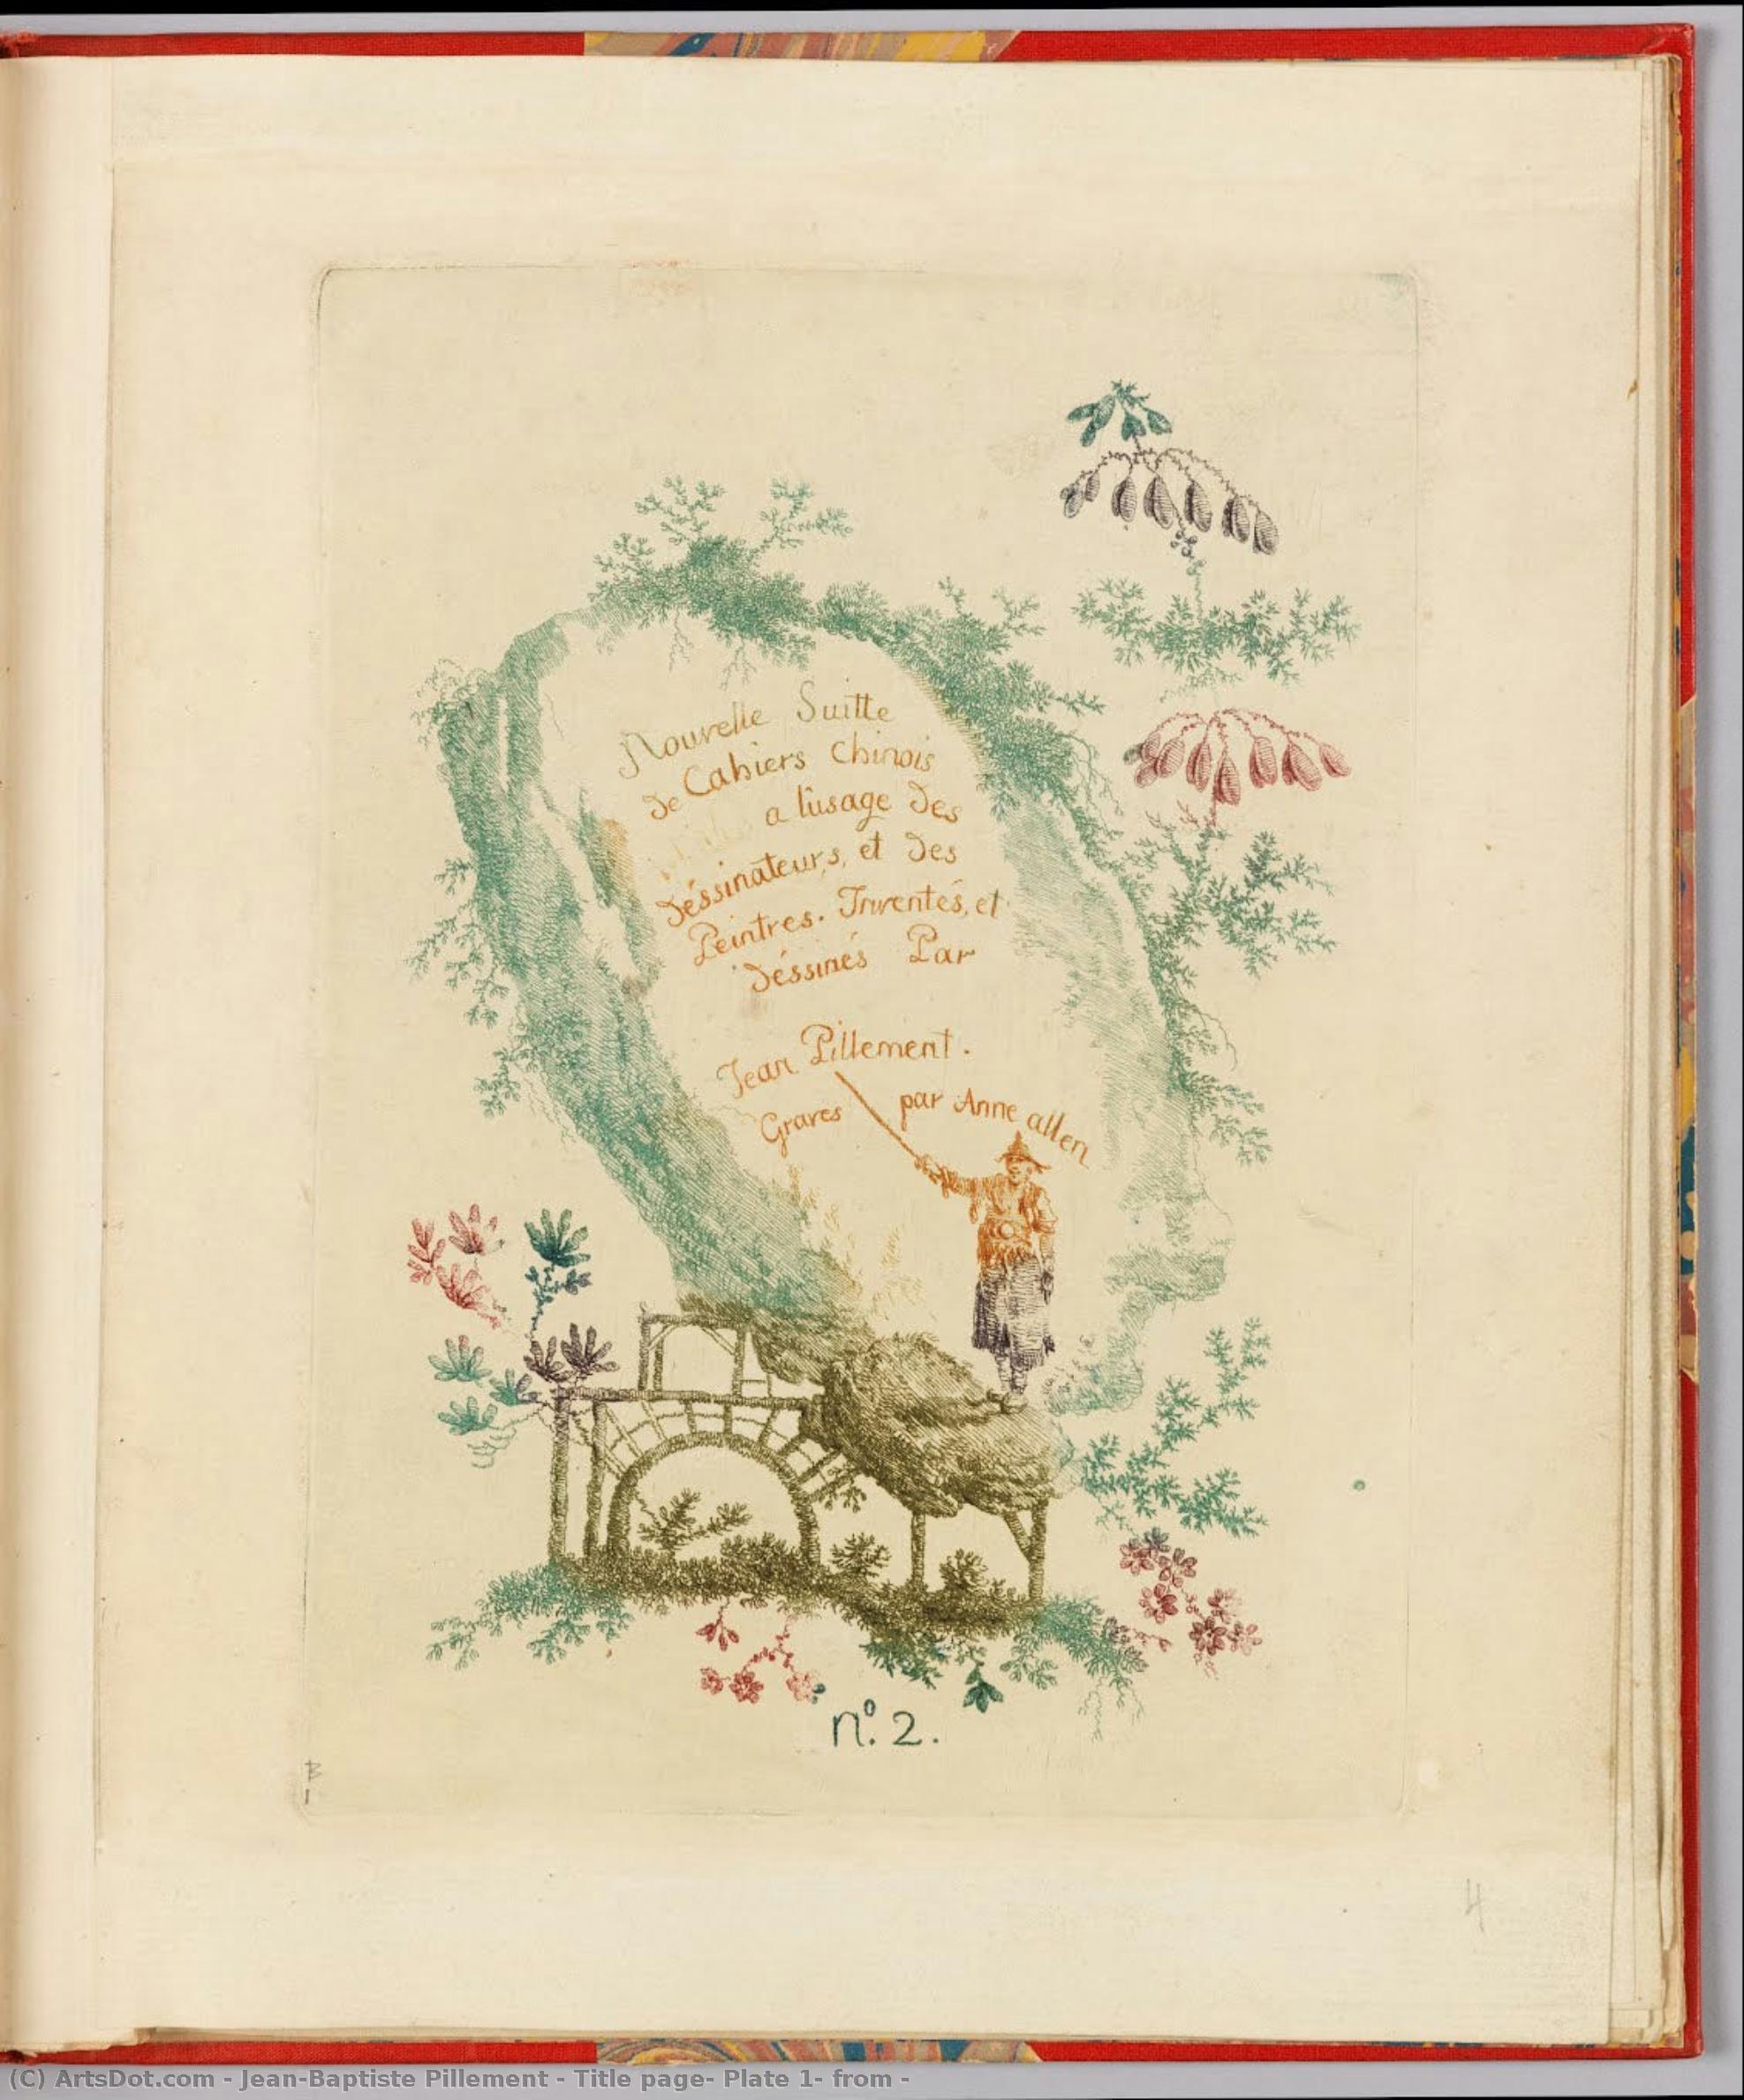 Nouvelle Suitte
de Cahiers Chinois
a l'usage des
déssinateurs, et des
Peintres. Inventés, et
déssinés Par
Jean Pillement.
Graves par Anne allen
nº. 2.
B
1
4
(C) ArtsDot.com - Jean-Baptiste Pillement - Title page- Plate 1- from -